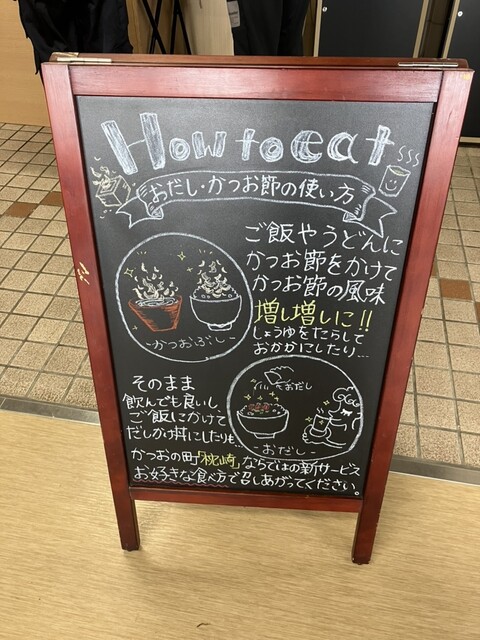 How to eat
おだし・かつお節の使い方
ご飯やうどんに
かつお節をかけて
かつお節の風味
増し増しに!!
しょうゆをたらして
おかかにしたり…
-かつおぶし-
そのまま
飲んでも良いし
ご飯にかけて
だしがけ丼にしたりも…
おだし
-おだし-
かつおの町「枕崎」ならではの新サービス
お好きな食べ方で召しあがってください。